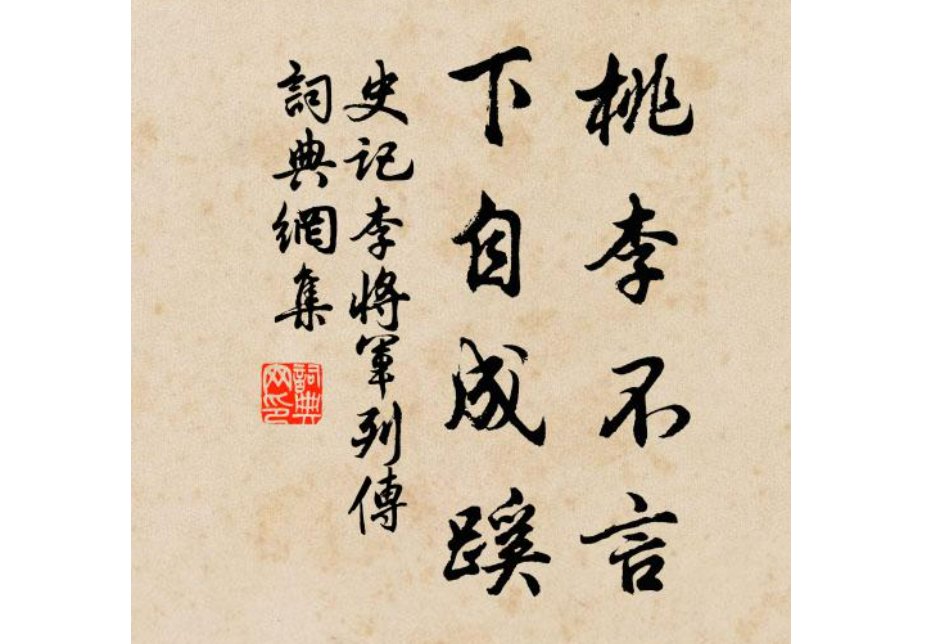 桃李不言
下自成蹊
史記李將軍列傳
詞典網集
詞典
网印